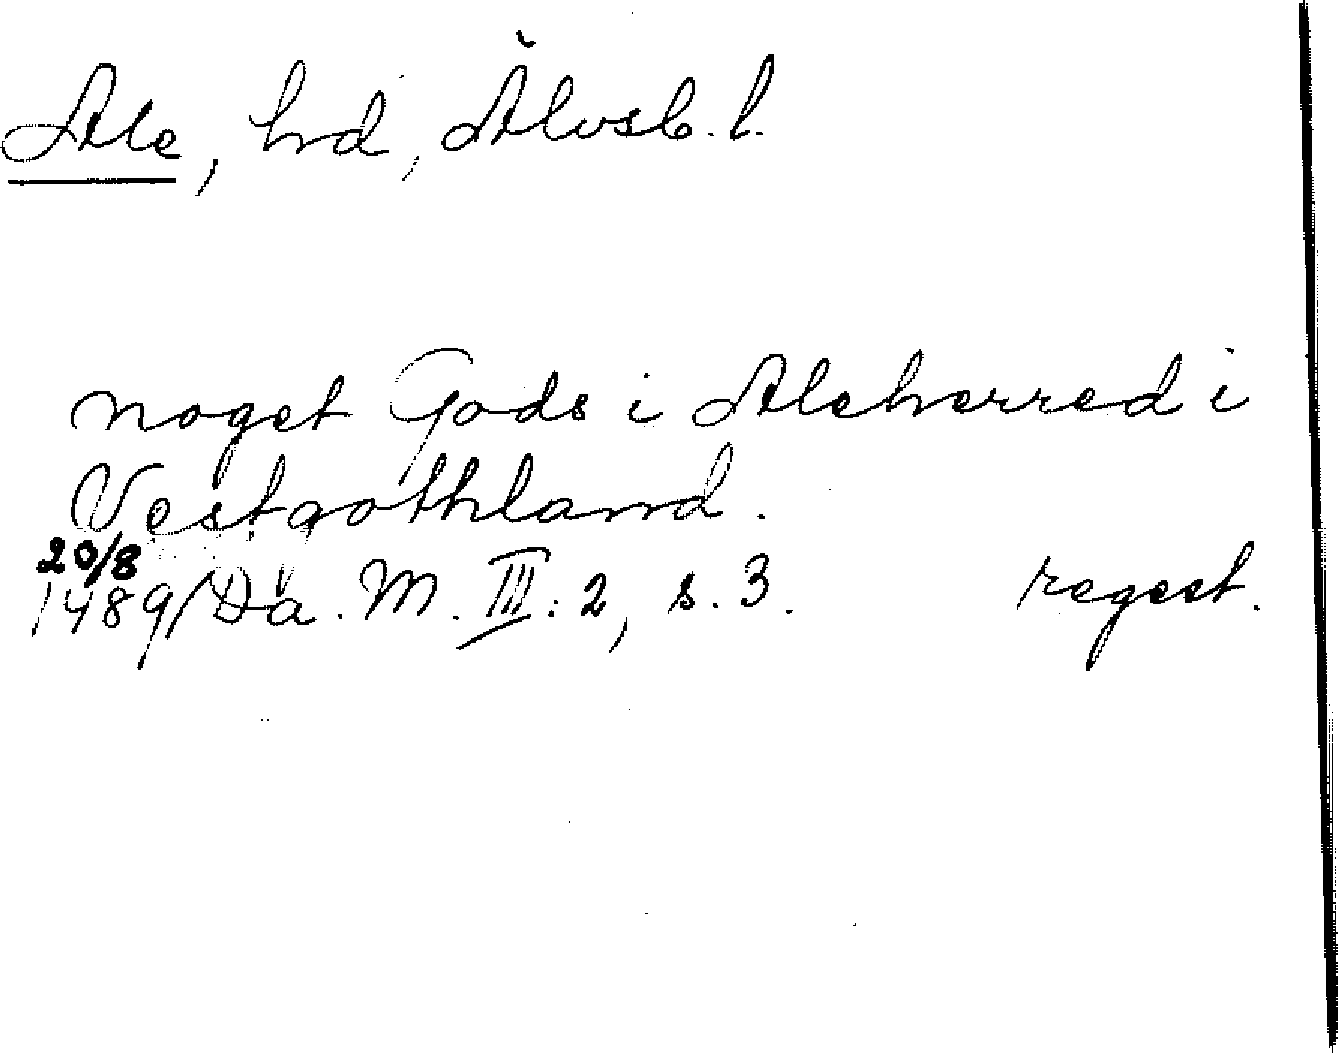 Ale, hd, Älvsb. l.
noget Gods i Aleherred i
Vestgothland.
20/8
1489 Da. M. III: 2, s. 3. regest.